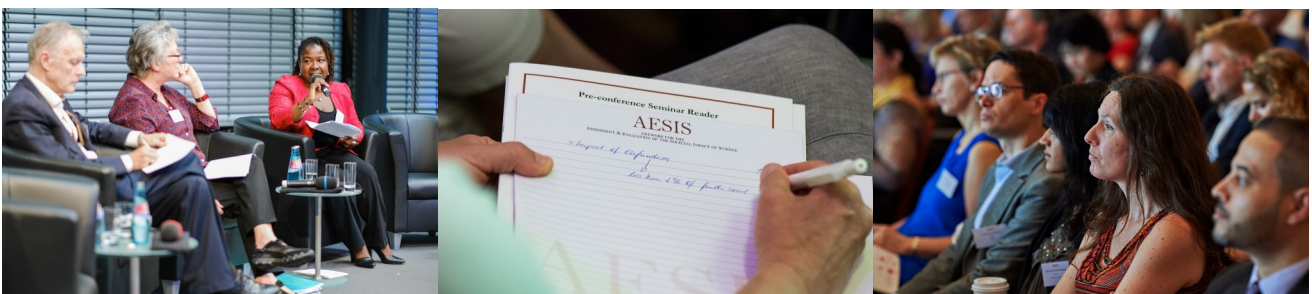 Pre-conference Seminar Reader
AESIS
NETWORK FOR THE
ASSESSMENT & EVALUATION OF THE SOCIETAL IMPACT OF SCIENCE
Impact of
less than 1% of
AES